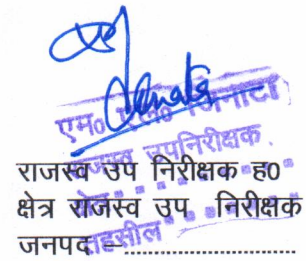 एम०
राजस्व उपनिरीक्षक
राजस्व उप निरीक्षक ह0
क्षेत्र राजस्व उप निरीक्षक
तहसील
जनपद –........................